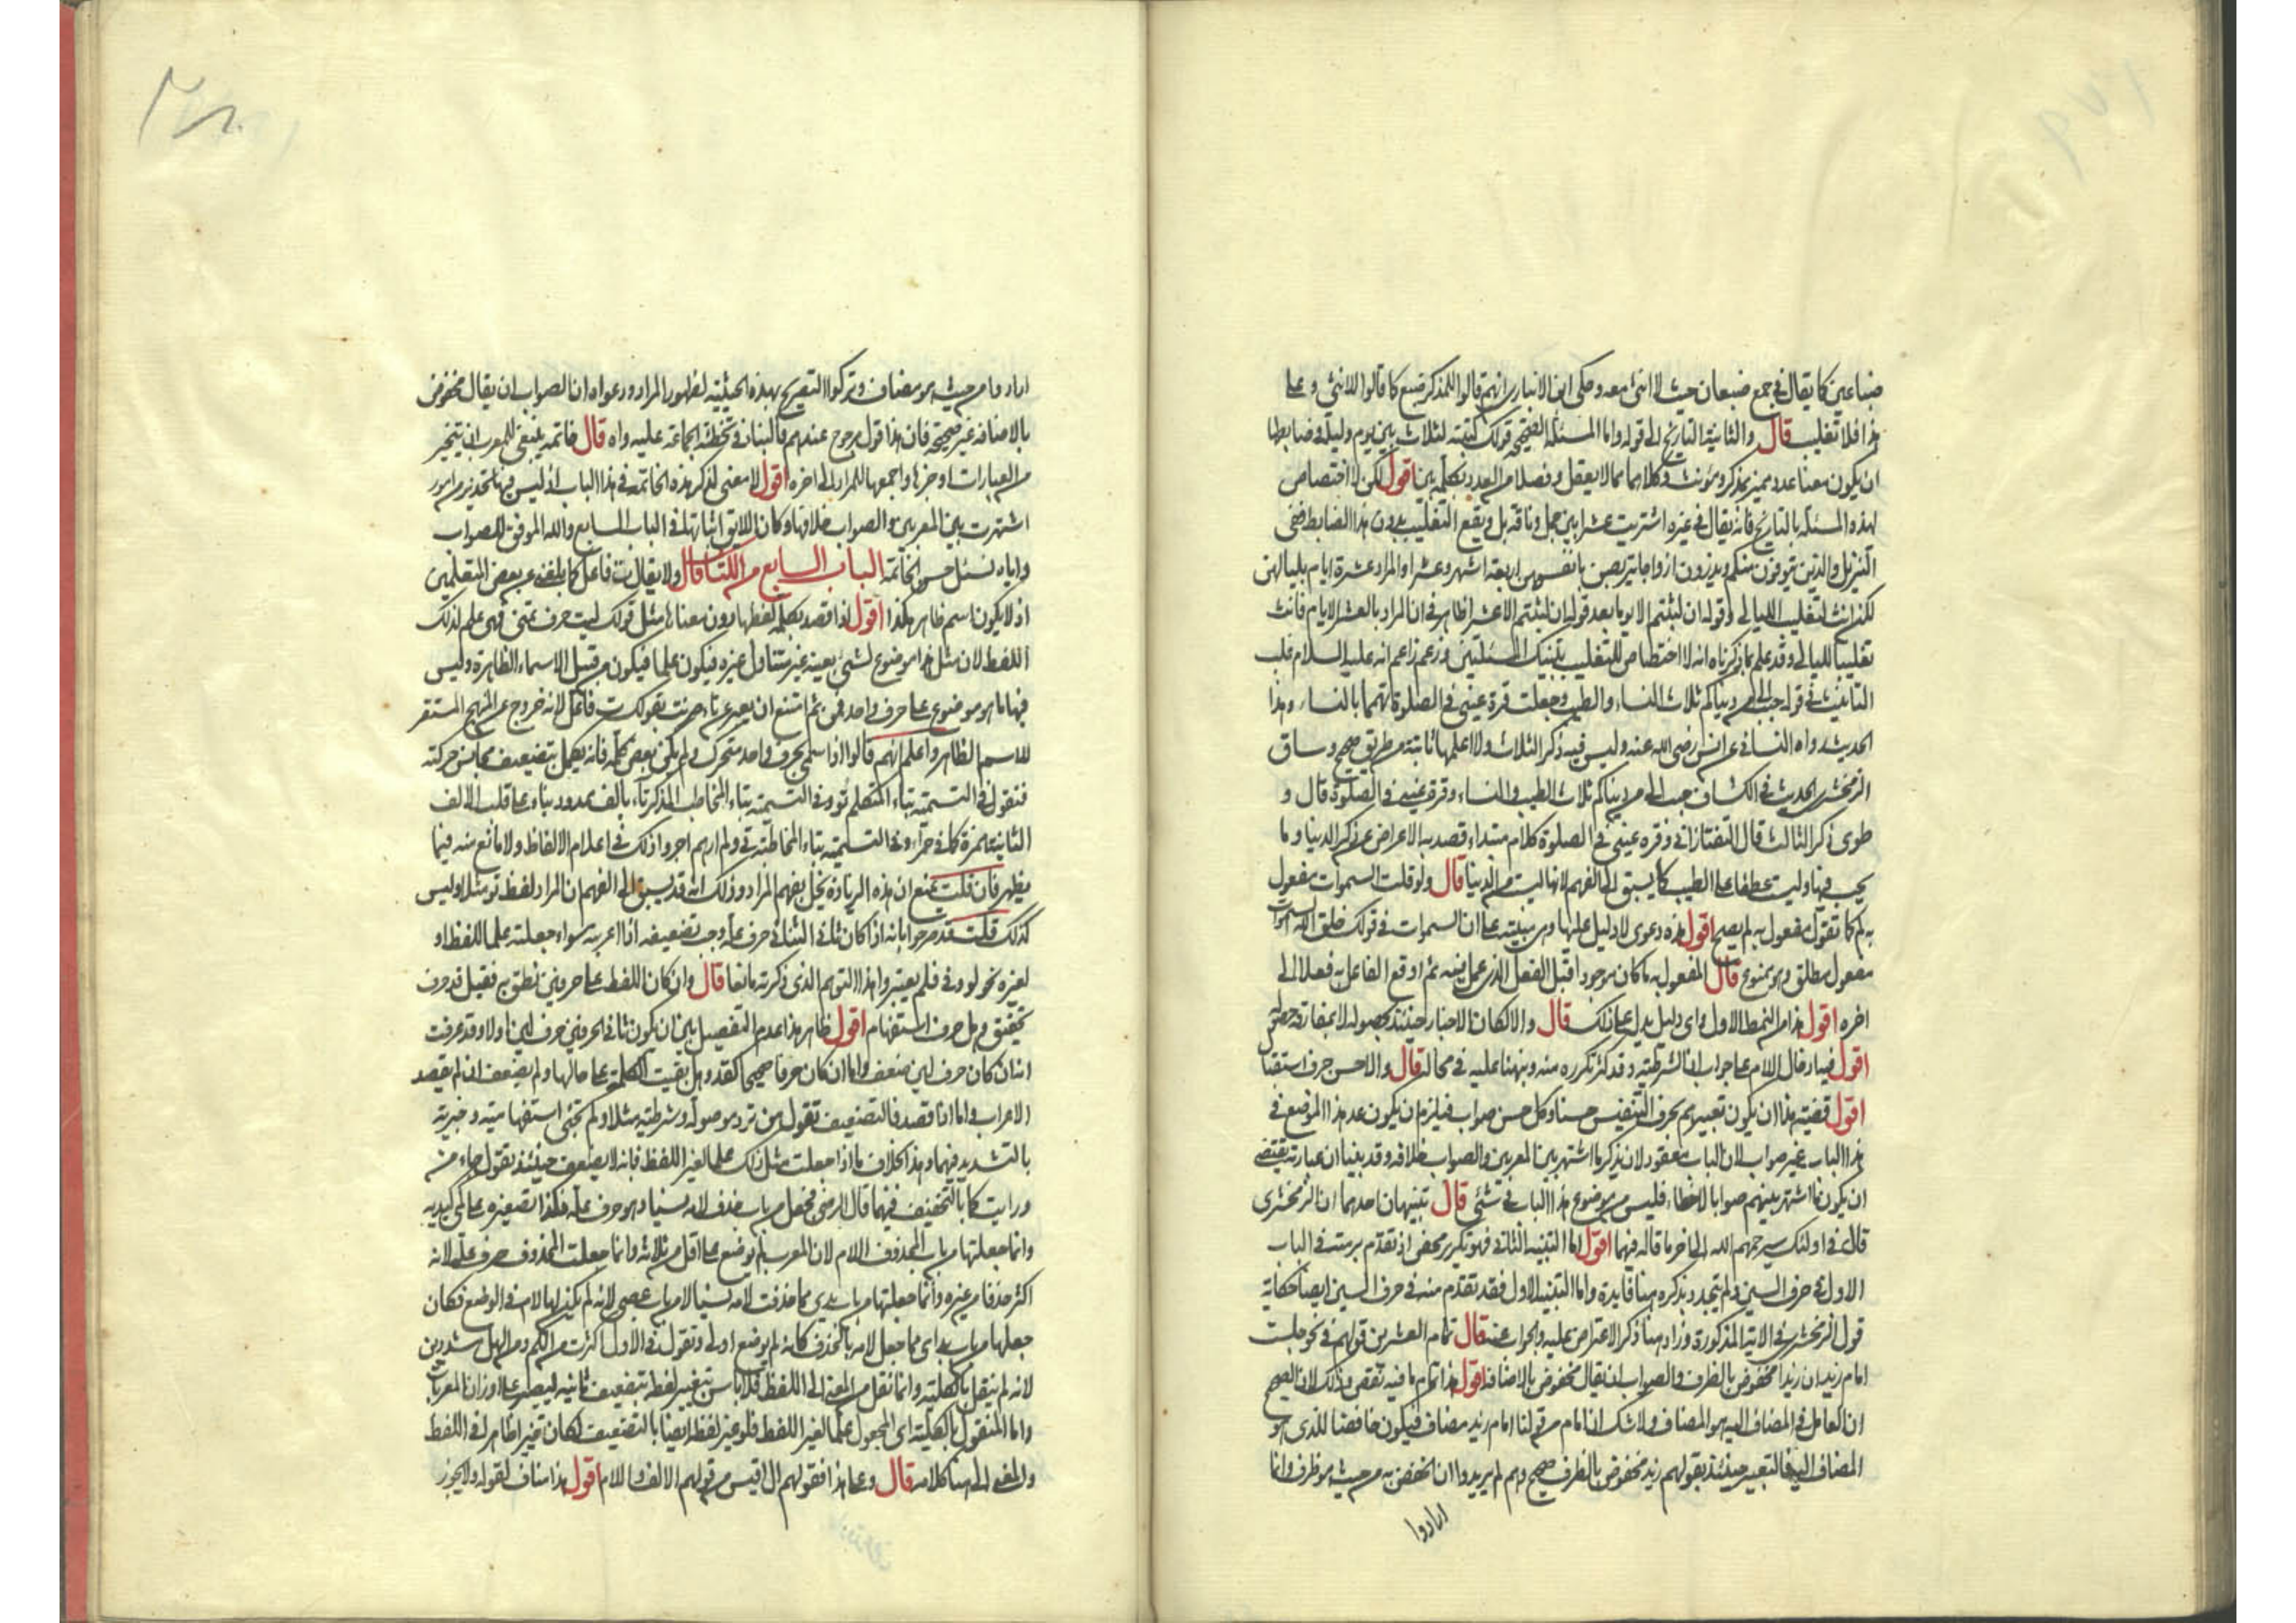 ضباعين كما يقال في جمع ضبعان حيث لا انثى معه وحكى ابن الانباري انهم قالوا للمذكر ضبع كما قالوا للانثى وعلى
هذا فلا تغليب قال والثانية التاريخ الى قوله واما المسئلة الصحيحة قولك كتبته لثلاث بين يوم وليلة وضابطها
ان يكون معنا عدد مميز بمذكر ومؤنث وكلاهما مما لا يعقل وفصلا من العدد بكلمة بين اقول لكن لا اختصاص
لهذه المسئلة بالتاريخ فانه يقال في غيره اشتريت عشرا بين جمل وناقة بل ويقع التغليب بدون هذا الضابط ففي
التنزيل والذين يتوفون منكم ويذرون ازواجا يتربصن بانفسهن اربعة اشهر وعشرا والمراد عشرة ايام بلياليهن
لكن انث لتغليب الليالي وقوله ان لبثتم الا يوما بعد قوله ان لبثتم الا عشرا ظاهر في ان المراد بالعشر الايام فانث
تغليبا لليالي وقد علم بما ذكرناه انه لا اختصاص للتغليب بتينك المسئلتين وزعم زاعم انه عليه السلام غلب
التانيث في قوله حبب الي من دنياكم ثلاث النساء والطيب وجعلت قرة عيني في الصلوة تهمما بالنساء وهذا
الحديث رواه النسائي عن انس رضي الله عنه وليس فيه ذكر الثلاث ولا اعلمها ثابتة من طريق صحيح وساق
الزمخشري الحديث في الكشاف حبب الي من دنياكم ثلاث الطيب والنساء وقرة عيني في الصلوة قال و
طوى ذكر الثالث قال التفتازاني وقرة عيني في الصلوة كلام مبتداء قصد به الاعراض عن ذكر الدنيا وما
يحب فيها وليست عطفا على الطيب كما يسبق الى الفهم لانها ليست من الدنيا قال ولو قلت السموات مفعول
به لم كما تقول مفعول به لم يصح اقول هذه دعوى لا دليل عليها وهي مبنية على ان السموات في قولك خلق الله السموات
مفعول مطلق وهو ممنوع قال المفعول به ما كان موجودا قبل الفعل الذي عمل فيه ثم اوقع الفاعل به فعلا الى
اخره اقول هذا من النمط الاول واي دليل يدل على ذلك قال والا لكان الاخبار حينئذ بحصوله لا بمقاربة حصوله
اقول فيه ادخال اللام على جواب ان الشرطية وقد كثر تكرره منه ونبهنا عليه في محاله قال والاحسن حرف استقبال
اقول قضية هذا ان يكون تعبيرهم بحرف التنفيس حسنا وكل حسن صواب فيلزم ان يكون عد هذا الموضع في
هذا الباب غير صواب لان الباب معقود لان يذكر ما اشتهر بين المعربين والصواب خلافه وقد بينا ان عبارته تقتضي
ان يكون ما اشتهر بينهم صوابا لا خطاء فليس من موضوع هذا الباب في شئ قال تنبيهان احدهما ان الزمخشري
قال في اولئك سيرحمهم الله الى اخر ما قاله فيهما اقول اما التنبيه الثاني فهو تكرير محض اذ تقدم برمته في الباب
الاول في حرف السين ولم يتجدد بذكره هنا فايدة واما التنبيه الاول فقد تقدم منه في حرف السين ايضا حكاية
قول الزمخشري في الاية المذكورة وزاد هنا ذكر الاعتراض عليه والجواب عنه قال تمام العشرين قولهم في نحو جلست
امام زيد ان زيدا مخفوض بالظرف والصواب ان يقال مخفوض بالاضافة اقول هذا تمام ما فيه تقض وذلك لان الصحيح
ان العامل في المضاف اليه هو المضاف ولا شك ان امام من قولنا امام زيد مضاف فيكون خافضا للذي هو
المضاف اليه فالتعبير حينئذ بقولهم زيد مخفوض بالظرف صحيح وهم لم يريدوا ان الخفض به من حيث هو ظرف وانما
ارادوا
ارادوا من حيث هو مضاف وتركوا التصريح بهذه الحيثية لظهور المراد ودعواه ان الصواب ان يقال مخفوض
بالاضافة غير صحيحة فان هذا قول مرجوح عندهم فالبنان في تخطئة الجماعة عليه واه قال خاتمة ينبغي للمعرب ان يتخير
من العبارات اوجزها واجمعها للمراد الى اخره اقول لا معنى لذكر هذه الخاتمة في هذا الباب اذ ليس فيها تحذير من امور
اشتهرت بين المعربين والصواب خلافها وكان اللايق اثباتها في الباب السابع والله الموفق للصواب
واياه نسئل حسن الخاتمة الباب السابع من الكتاب قال ولا يقال ت فاعل كما بلغني عن بعض المتعلمين
اذ لا يكون اسم ظاهر هكذا اقول اذا قصد بكلمة لفظها دون معناها مثل قولك ليت حرف تمني فهي علم لذلك
اللفظ لان مثل هذا موضوع لشئ بعينه غير متناول غيره فيكون علما فيكون من قبيل الاسماء الظاهرة وليس
فيها ما هو موضوع على حرف واحد فمن ثم امتنع ان يعبر عن تاء ضربت بقولك ت فاعل لانه خروج عن المنهج المستقر
للاسم الظاهر واعلم انهم قالوا اذا سمي بحرف واحد متحرك ولم يكن بعض كلمة فانه يكمل بتضعيف مجانس حركته
فتقول في التسمية بتاء المتكلم تو وفي التسمية بتاء المخاطب المذكر تاء بالف ممدود بناء على قلب الالف
الثانية همزة كما في حمراء وفي التسمية بتاء المخاطبة تي ولم ارهم اجروا ذلك في اعلام الالفاظ ولا مانع منه فيما
يظهر فان قلت يمنع ان هذه الزيادة يخل بفهم المراد وذلك انه قد يسبق الى الفهم ان المراد لفظ تو مثلا وليس
كذلك قلت قد صرحوا بانه اذا كان ثاني الثنائي حرف علة وجب تضعيفه اذا اعربته سواء جعلته علما للفظ او
لغيره نحو لو وفي فلم يعتبروا هذا التوهم الذي ذكرته مانعا قال وان كان اللفظ على حرفين نطق به فقيل قد حرف
تحقيق وهل حرف استفهام اقول ظاهر هذا عدم التفصيل بين ان يكون ثاني الحرفين حرف لين اولا وقد عرفت
انه ان كان حرف لين ضعف واما ان كان حرفا صحيحا كقد وهل بقيت الكلمة على حالها ولم يضعف ان لم يقصد
الاعراب واما اذا قصد فالتضعيف تقول من ترد موصولة وشرطية مثلا وكم تجئ استفهامية وخبرية
بالتشديد فيهما وهذا بخلاف ما اذا جعلت مثل ذلك علما لغير اللفظ فانه لا يضعف حينئذ تقول جاء من
ورايت كما بالتخفيف فيهما قال الرضي فجعل من باب ما حذف لامه نسيا وهو حرف علة فلذا تصغيره على كمي كيديه
وانما جعلتها من باب المحذوف اللام لان المعرب لم يوضع على اقل من ثلاثة وانما جعلت المحذوف حرف علة لانه
اكثر حذفا من غيره وانما جعلتها من باب يدي مما حذفت لامه نسيا لا من باب عصى لانه لم يكن لها لام في الوضع فكان
جعلها من باب يد اي مما جعل لامه بالحذف كانه لم يوضع اولى وتقول في الاول اكثرت من الكم ومن الهل مشددين
لانه لم ينقل بالكلية وانما نقل من المعنى الى اللفظ فلا باس بتغيير لفظه بتضعيف ثانيه ليصير على اوزان المعربات
واما المنقول بالكلية اي المجعول علما لغير اللفظ فلو غير لفظه ايضا بالتضعيف لكان تغييرا ظاهرا في اللفظ
والمعنى الى هنا كلامه قال وعلى هذا فقولهم ال اقيس من قولهم الالف واللام اقول هذا مناف لقوله ولا يجوز